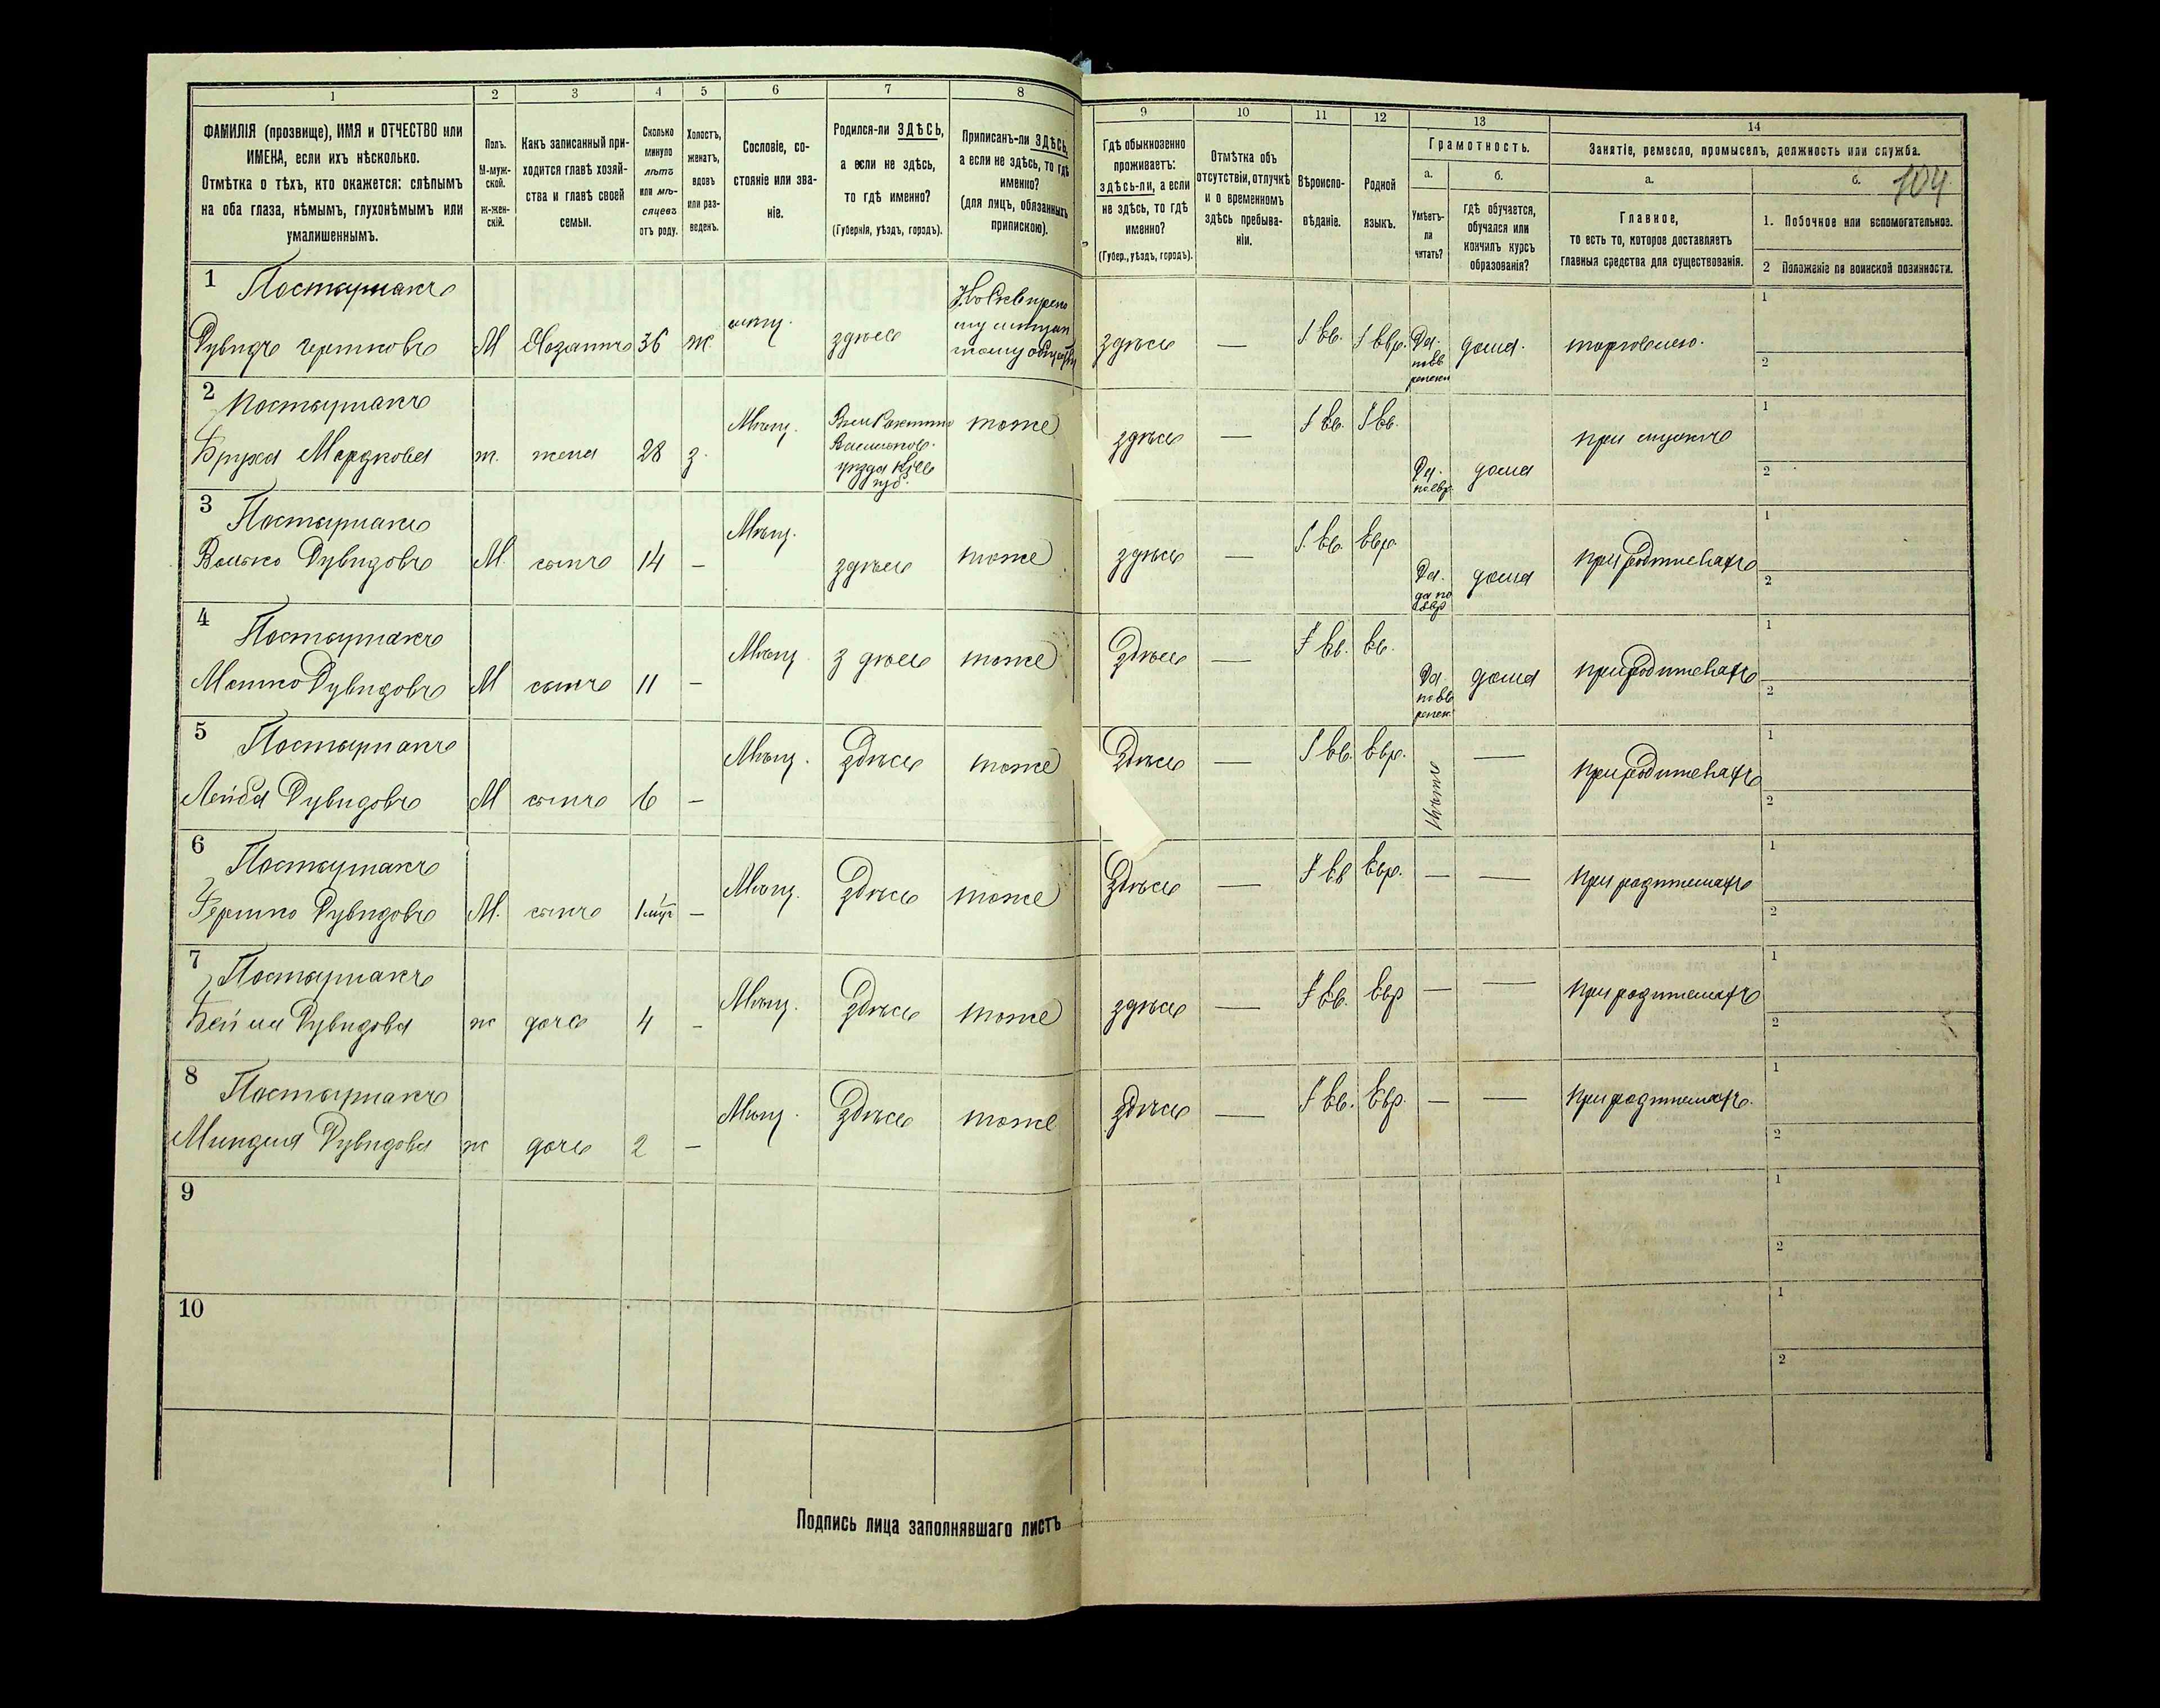 1 2 3 4 5 6 7 8 9 10 11 12 13 14
ФАМИЛІЯ (прозвище), ИМЯ и ОТЧЕСТВО или
ИМЕНА, если ихъ нѣсколько.
Отмѣтка о тѣхъ, кто окажется: слѣпымъ
на оба глаза, нѣмымъ, глухонѣмымъ или
умалишеннымъ.
Полъ.
М-муж-
ской.
Ж-жен-
скій.
Какъ записанный при-
ходится главѣ хозяй-
ства и главѣ своей
семьи.
Сколько
минуло
лѣтъ
или мѣ-
сяцевъ
отъ роду.
Холостъ,
женатъ,
вдовъ
или раз-
веденъ.
Сословіе, со-
стояніе или зва-
ніе.
Родился-ли ЗДѢСЬ,
а если не здѣсь,
то гдѣ именно?
(Губернія, уѣздъ, городъ).
Приписанъ-ли ЗДѢСЬ,
а если не здѣсь, то гдѣ
именно?
(для лицъ, обязанныхъ
припискою).
Гдѣ обыкновенно
проживаетъ:
здѣсь-ли, а если
не здѣсь, то гдѣ
именно?
(Губер., уѣздъ, городъ).
Отмѣтка объ
отсутствіи, отлучкѣ
и о временномъ
здѣсь пребыва-
ніи.
Вѣроиспо-
вѣданіе.
Родной
языкъ.
Грамотность.
а.
Умѣетъ-
ли
читать?
б.
гдѣ обучается,
обучался или
кончилъ курсъ
образованія?
Занятіе, ремесло, промыселъ, должность или служба.
а.
Главное,
то есть то, которое доставляетъ
главныя средства для существованія.
б. 104
1. Побочное или вспомогательное.
2 Положеніе по воинской повинности.
1 Постышакъ
Дувидъ Гершковъ М Хозяинъ 36 ж мѣщ. здѣсь
здѣсь — Iев. Iевр. Да. дома. торговлею.
1
2
2 Постышакъ
Бруха Мордкова ж. жена 28 з. Мѣщ.
уѣзда Кіев
губ.
тоже здѣсь — Iев. Iев. Да. по евр. дома при мужѣ
1
2
3 Постышакъ
Волько Дувидовъ М. сынъ 14 – Мѣщ. здѣсь тоже здѣсь — I. ев. Евр. Да. по евр дома при родителяхъ
1
2
4 Постышакъ
Мошко Дувидовъ М сынъ 11 – Мѣщ. здѣсь тоже Здѣсь — Iев. ев. Да. дома при родителяхъ
1
2
5 Постышакъ
Лейба Дувидовъ М сынъ 6 – Мѣщ. Здѣсь тоже Здѣсь — Iев. Евр. Нѣтъ — при родителяхъ
1
2
6 Постышакъ
Гершко Дувидовъ М. сынъ – Мѣщ. Здѣсь тоже Здѣсь — Iев Евр. — — при родителяхъ
1
2
7 Постышакъ
Бейла Дувидова ж дочь 4 – Мѣщ. Здѣсь тоже здѣсь — Iев. Евр — — при родителяхъ
1
2
8 Постышакъ
Миндля Дувидова ж дочь 2 – Мѣщ. Здѣсь тоже Здѣсь — Iев. Евр. — — при родителяхъ.
1
2
9
1
2
10
1
2
Подпись лица заполнявшаго листъ